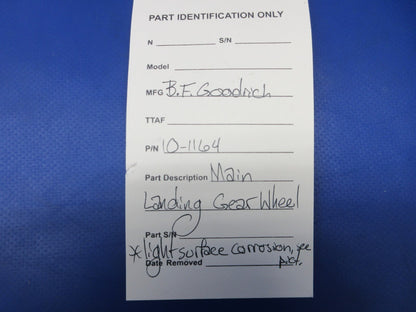 PART IDENTIFICATION ONLY
N S/N
Model
MFG B.F. Goodrich
TTAF
P/N 10-1164
Part Description Main
Landing Gear Wheel
Part S/N
* light surface corrosion, see
Date Removed pict.